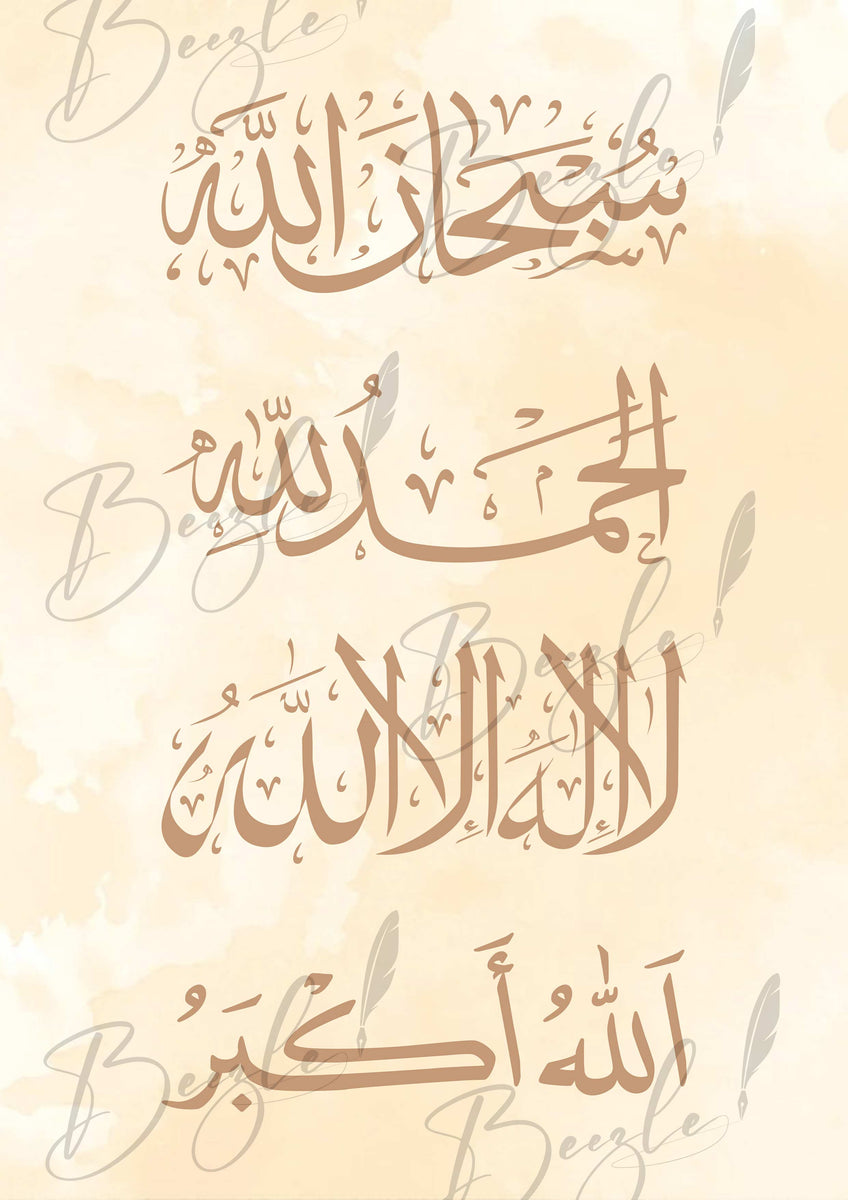 Beezle
سُبْحَانَ اللَّهِ
Beezle
الْحَمْدُ لِلَّهِ
Beezle
لَا إِلَٰهَ إِلَّا اللَّهُ
Beezle
اَللَّٰهُ أَكْبَرُ
Beezle
Beezle